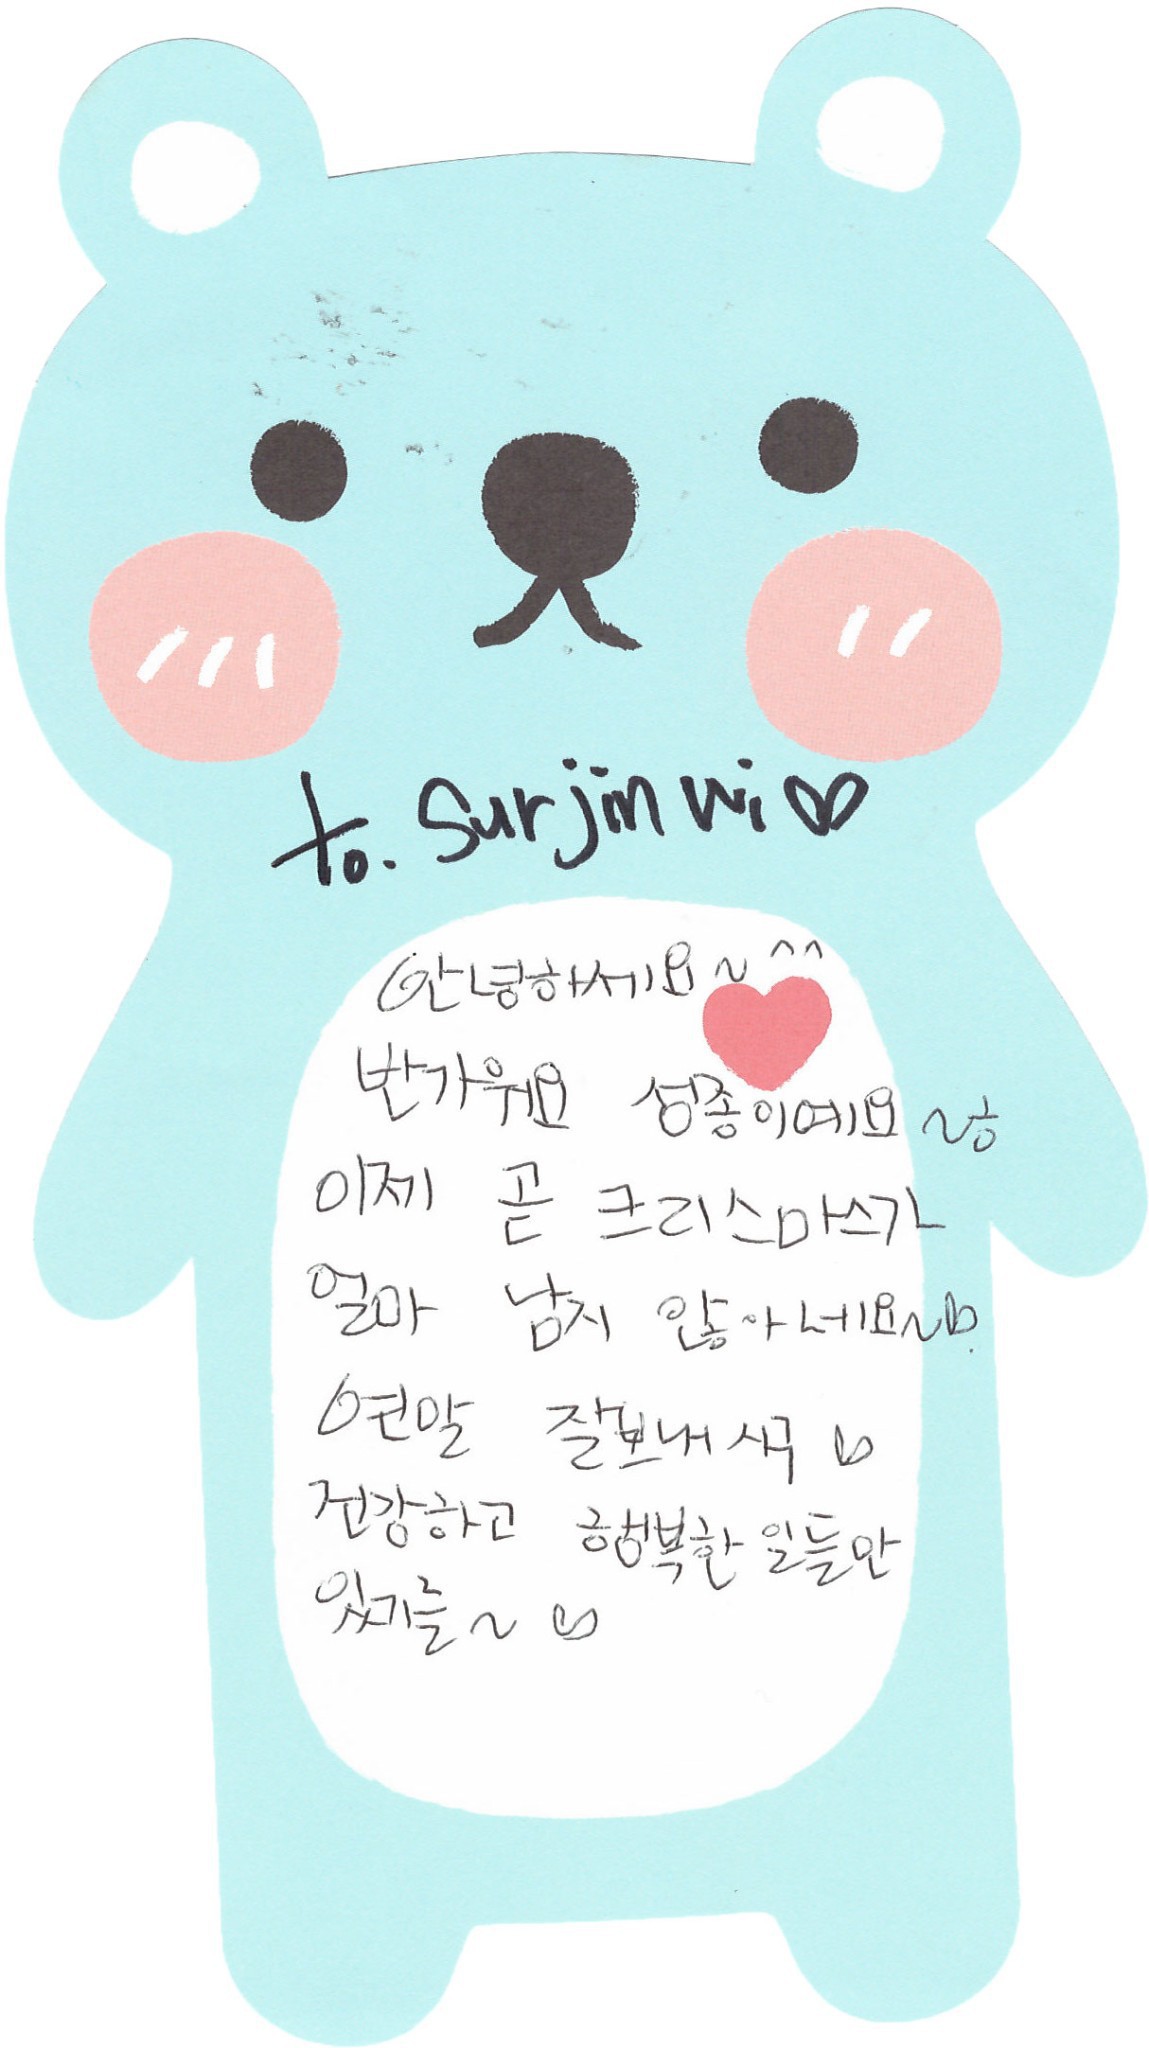 to. Surjin wi ♡
안녕하세요~^^
반가워요 성종이에요~ㅎ
이제 곧 크리스마스가
얼마 남지 않아네요~♡.
연말 잘보내시구 ♡
건강하고 행복한 일들만
있기를~ ♡